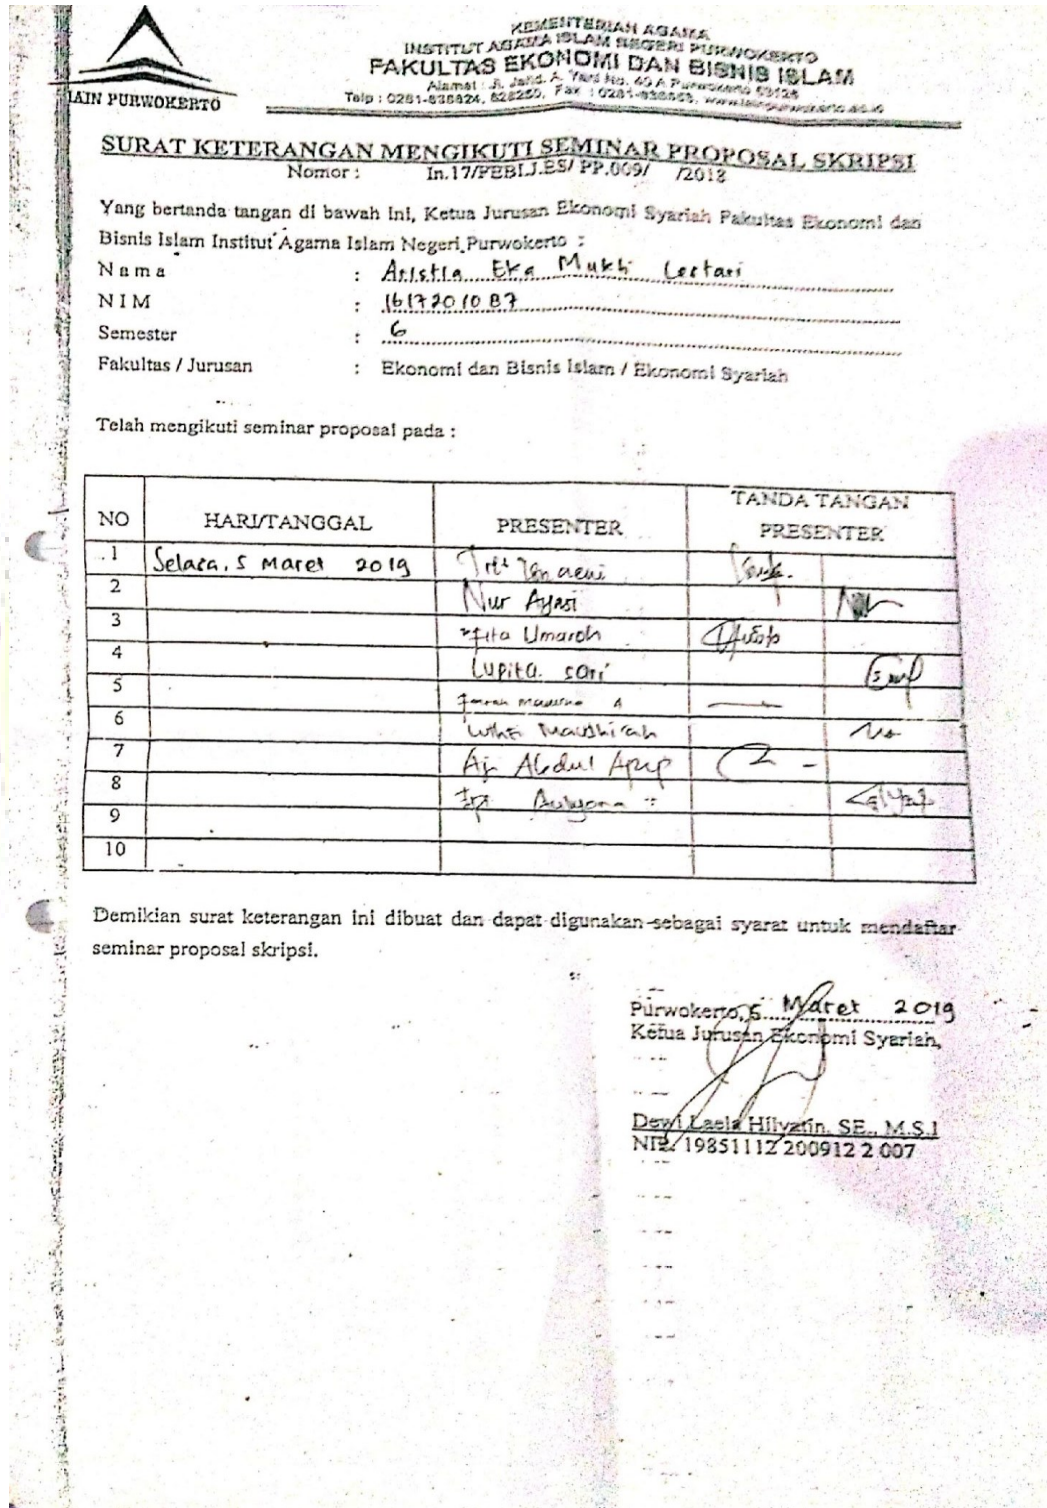 IAIN PURWOKERTO
KEMENTERIAN AGAMA
INSTITUT AGAMA ISLAM NEGERI PURWOKERTO
FAKULTAS EKONOMI DAN BISNIS ISLAM
Alamat : Jl. Jend. A. Yani No. 40 A Purwokerto 53126
Telp : 0281-635624, 628250, Fax : 0281-636553, www.iainpurwokerto.ac.id
SURAT KETERANGAN MENGIKUTI SEMINAR PROPOSAL SKRIPSI
Nomor : In.17/FEBI.J.ES/ PP.009/ /2018
Yang bertanda tangan di bawah ini, Ketua Jurusan Ekonomi Syariah Fakultas Ekonomi dan
Bisnis Islam Institut Agama Islam Negeri Purwokerto :
Nama : Aristia Eka Mukti Lestari
NIM : 1617201087
Semester : 6
Fakultas / Jurusan : Ekonomi dan Bisnis Islam / Ekonomi Syariah
Telah mengikuti seminar proposal pada :
NO HARI/TANGGAL PRESENTER TANDA TANGAN PRESENTER
1 Selasa, 5 Maret 2019
2 Nur
3 Umaroh
4 Lupita Sari
5
6
7 Abdul
8
9
10
Demikian surat keterangan ini dibuat dan dapat digunakan sebagai syarat untuk mendaftar
seminar proposal skripsi.
Purwokerto, 5 Maret 2019
Ketua Jurusan Ekonomi Syariah,
Dewi Laela Hilyatin, SE., M.S.I
NIP. 19851112 200912 2 007